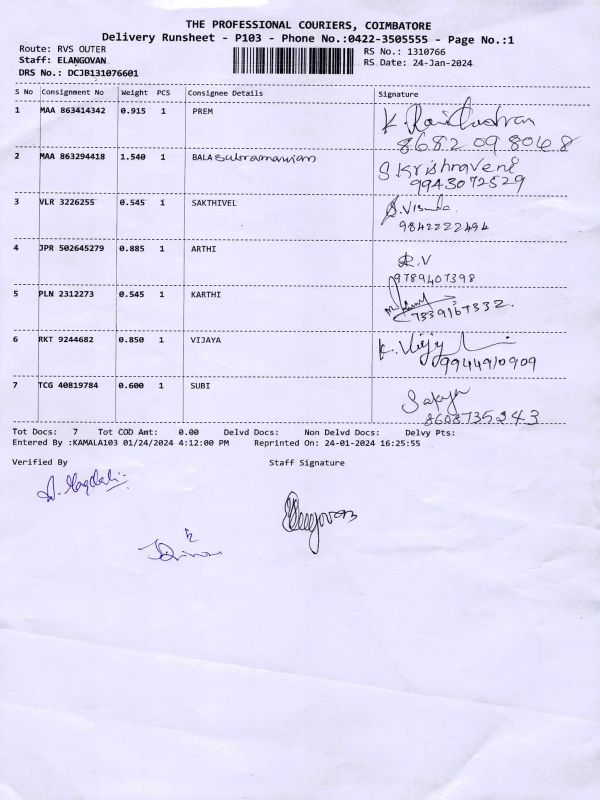 THE PROFESSIONAL COURIERS, COIMBATORE
Delivery Runsheet - P103 - Phone No.:0422-3505555 - Page No.:1
Route: RVS OUTER RS No.: 1310766
Staff: ELANGOVAN RS Date: 24-Jan-2024
DRS No.: DCJB131076601
S No Consignment No Weight PCS Consignee Details Signature
1 MAA 863414342 0.915 1 PREM K.
8682098068
2 MAA 863294418 1.540 1 BALA Subramaniam S Krishnaveni
9943072529
3 VLR 3226255 0.545 1 SAKTHIVEL
9842222494
4 JPR 502645279 0.885 1 ARTHI R.V
9789407398
5 PLN 2312273 0.545 1 KARTHI
7339167332.
6 RKT 9244682 0.850 1 VIJAYA K.
9944910909
7 TCG 40819784 0.600 1 SUBI
8608735243
Tot Docs: 7 Tot COD Amt: 0.00 Delvd Docs: Non Delvd Docs: Delvy Pts:
Entered By :KAMALA103 01/24/2024 4:12:00 PM Reprinted On: 24-01-2024 16:25:55
Verified By Staff Signature
Elangovan